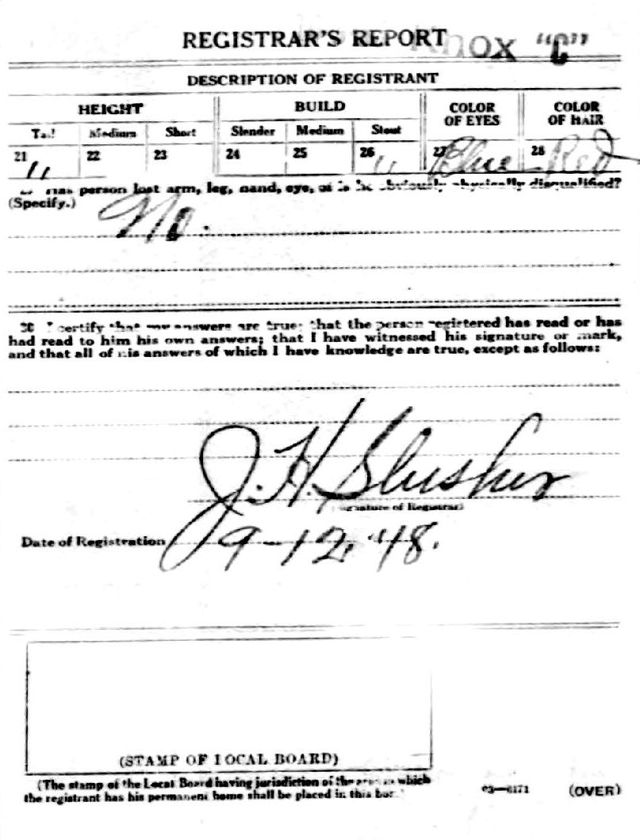 REGISTRAR'S REPORT Knox "C"
DESCRIPTION OF REGISTRANT
HEIGHT BUILD COLOR OF EYES COLOR OF HAIR
Tall Medium Short Slender Medium Stout
21 " 22 23 24 25 26 " 27 Blue 28 Red
29 Has person lost arm, leg, hand, eye, or is he obviously physically disqualified?
(Specify.) No.
30 I certify that my answers are true; that the person registered has read or has
had read to him his own answers; that I have witnessed his signature or mark,
and that all of his answers of which I have knowledge are true, except as follows:
J. H. Slusher
(Signature of Registrar)
Date of Registration 9-12-'18.
(STAMP OF LOCAL BOARD)
(The stamp of the Local Board having jurisdiction of the area in which
the registrant has his permanent home shall be placed in this box.)
03—6171 (OVER)